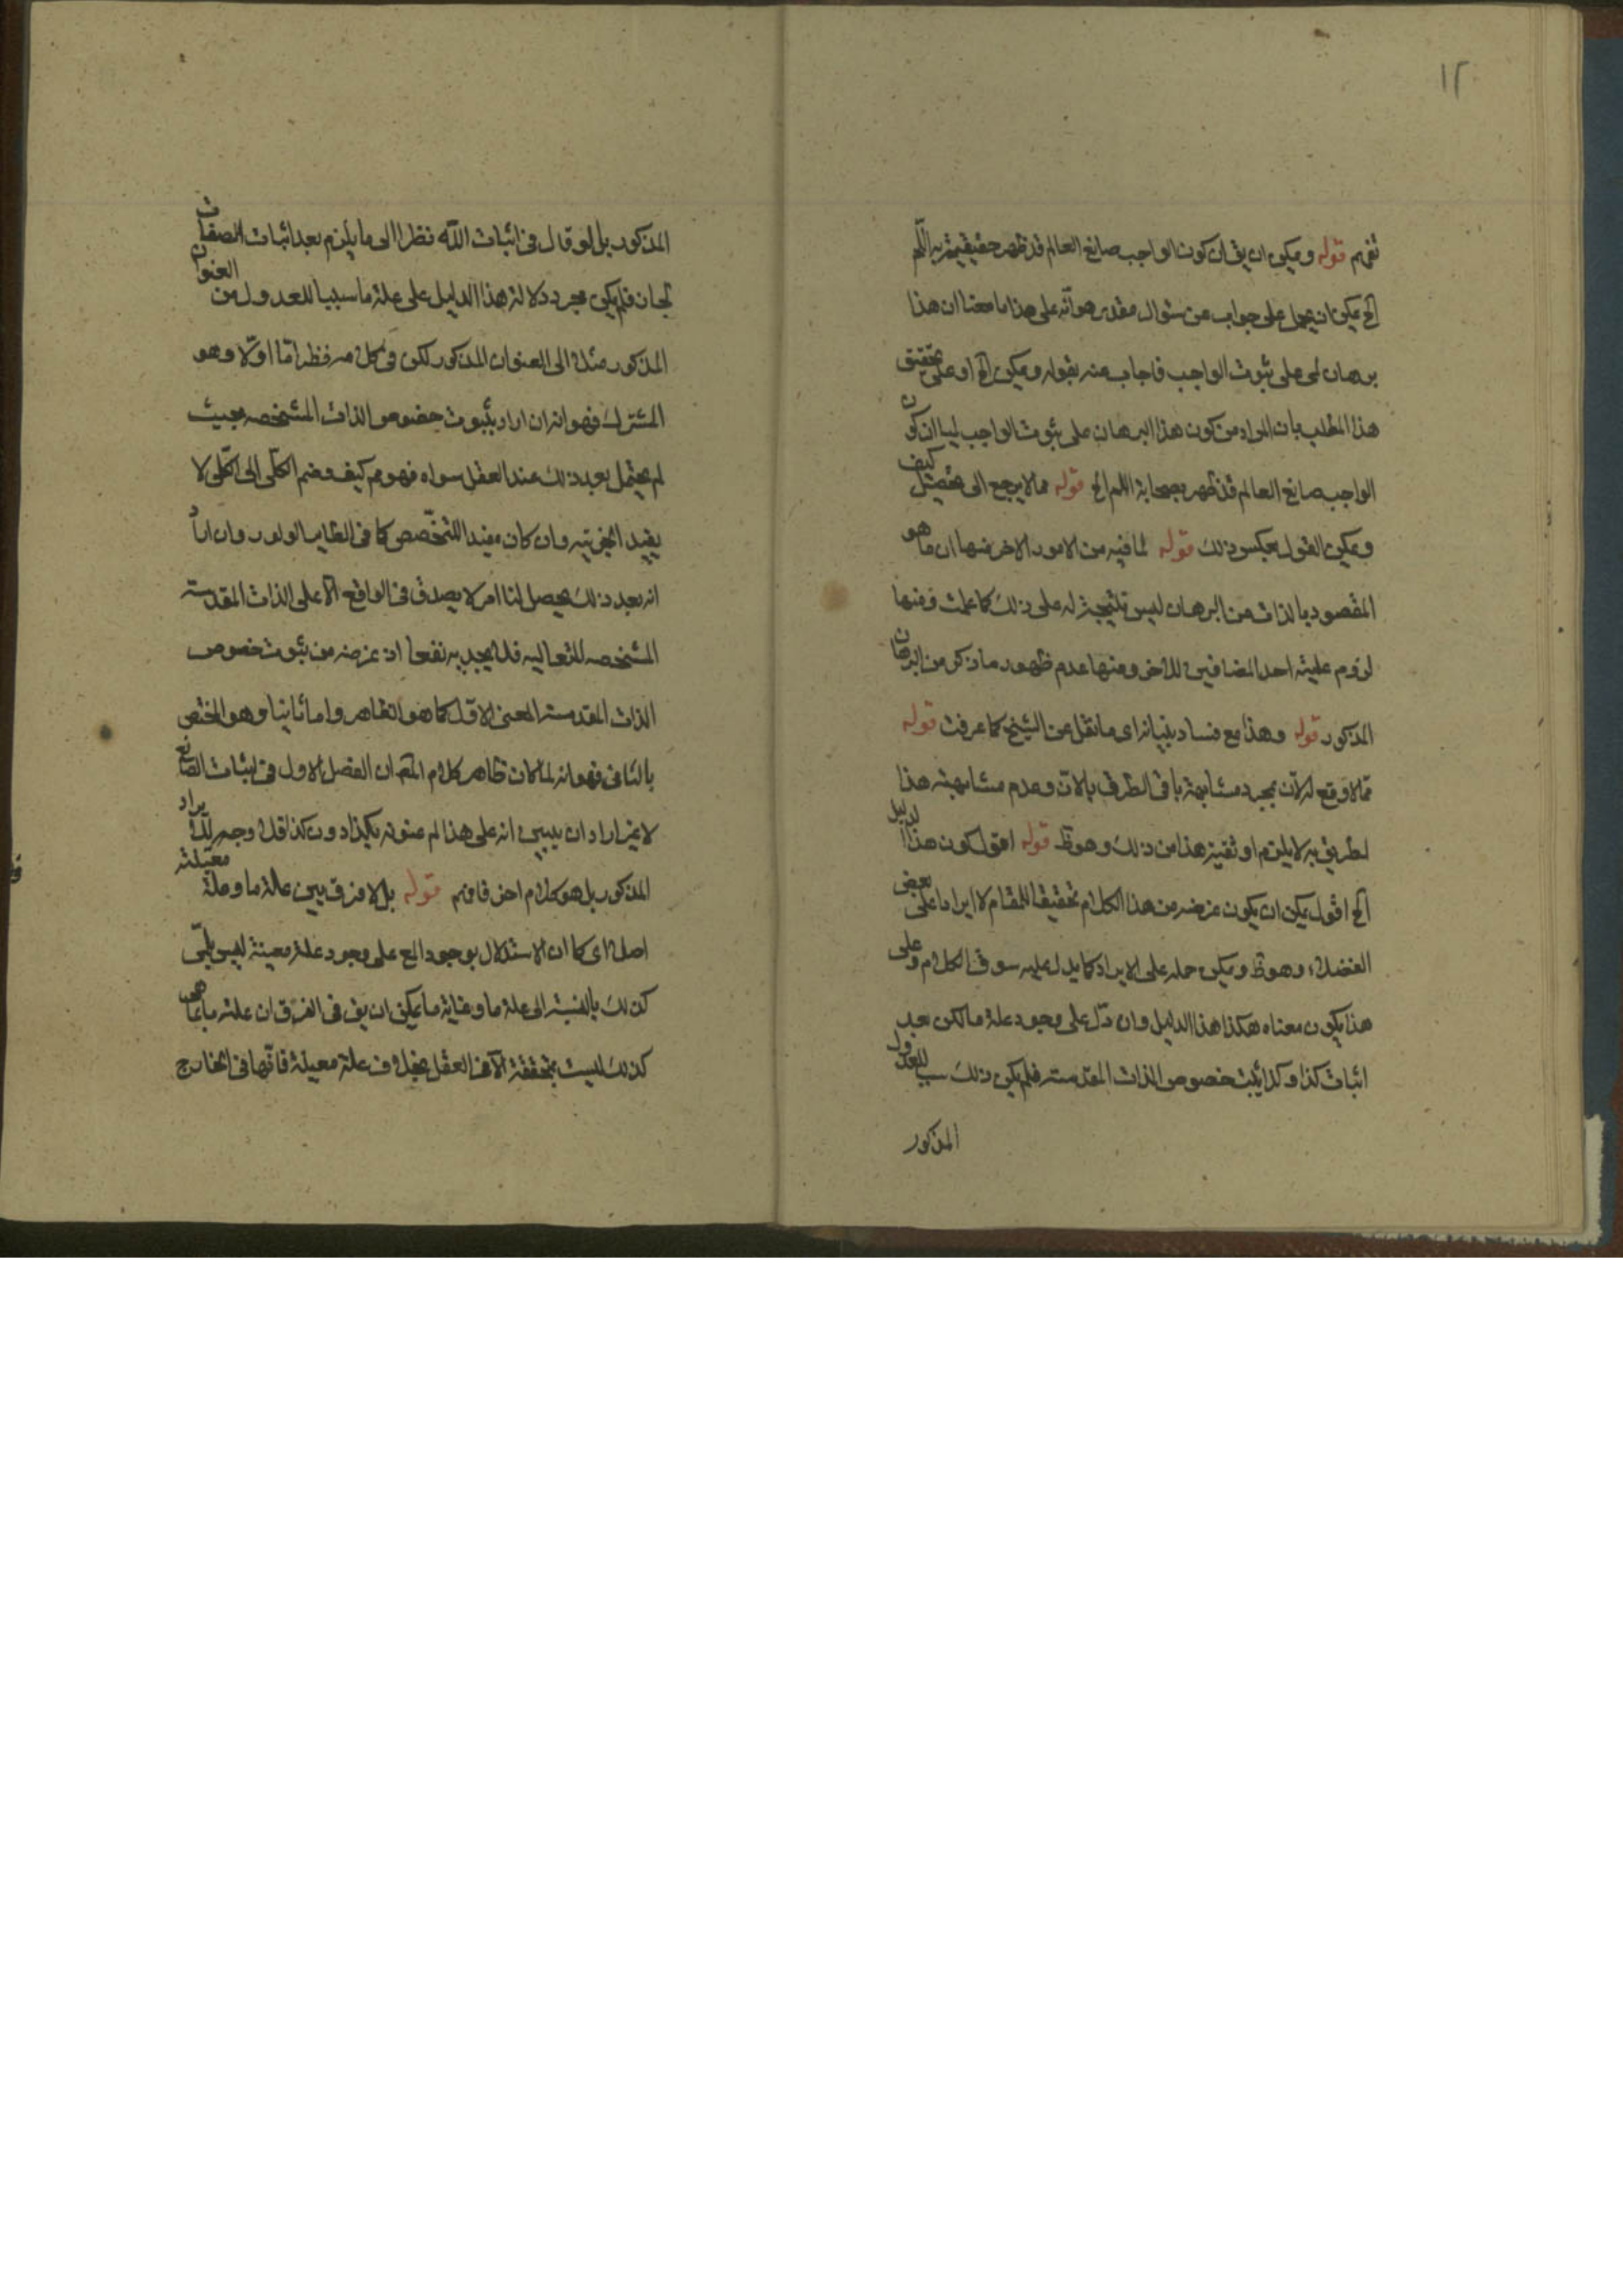 ١٢
تفهم قوله ويمكن ان يق ان كون الواجب صانع العالم قد ظهر حقيقيته به اللّم
الخ يمكن ان يحمل على جواب عن سئوال مقدر هو انّه على هذا ما معنا ان هذا
برهان لمى على ثبوت الواجب فاجاب عنه بقوله ويمكن الخ او على تحقيق
هذا المطلب بان المراد من كون هذا البرهان على ثبوت الواجب لميا ان كون
الواجب صانع العالم قد ظهر اللم الخ قوله مما لا يرجع الى كيف
ويمكن القول بعكس ذلك قوله لما فيه من الامور الاخر منها ان ما هو
المقصود بالذات من البرهان ليس نتيجة له على ذلك كما علمت ومنها
لزوم علية احد المضافين للاخر ومنها عدم ظهور ما ذكر من البرهان
المذكور قوله وهذا مع فساد بنيانه اى ما نقل عن الشيخ كما عرفت قوله
ممّا لا وقع له لان بمجرد مشابهة باقى الطرق بالان وعدم مشابهته هذا
لطريق به لا يلزم اوثقية هذا من ذلك وهو ظ قوله اقول كون هذا الدليل
الخ اقول يمكن ان يكون غرضه من هذا الكلام تحقيقا للمقام لا ايرادا على بعض
الفضلاء وهو ظ ويمكن حمله على الايراد كما يدل عليه سوق الكلام وعلى
هذا يكون معناه هكذا هذا الدليل وان دلّ على وجود علة ما لكن بعد
اثبات كذا وكذا يثبت خصوص الذات المقدسة فلم يكن ذلك سبب للعدول
المذكور
المذكور بل لو قال فى اثبات اللّه نظرا الى ما يلزم بعد اثبات الصفات
لجان فلم يكن مجرد دلالة هذا الدليل على علة ما سببا للعدول من العنوان
المذكور مثلا الى العنوان المذكور لكن فى كل منه نظر امّا اوّلا وهو
المشترك فهو انه ان اراد بثبوت خصوص الذات المشخصه بحيث
لم يحتمل بعد ذلك عند العقل سواه فهو مم كيف وضم الكلّى الى الكلّى لا
يفيد الجزئيه وان كان مفيدا للتخصّص كما فى الطاير الولود وان اراد
انه بعد ذلك يحصل لنا امر لا يصدق فى الواقع الّا على الذات المقدسة
المشخصه المتعاليه فلا يجد به نفعا اذ غرضه من ثبوت خصوص
الذات المقدسة المعنى الاوّل كما هو الظاهر واما ثانيا وهو المختص
بالثانى فهو انه لما كان ظاهر كلام المصّ ان الفصل الاول فى اثبات الصانع
لا غير اراد ان يبين انه على هذا لم عنونه بكذا دون كذا فلا وجه لذلك يراد
المذكور بل هو كلام اخر فافهم قوله بل لا فرق بين علة ما وعلة معيّنة
اصلا اى كما ان الاستدلال بوجود المع على وجود علة معينة ليس بلمّى
كذلك بالنسبة الى علة ما وغاية ما يمكن ان يق فى الفرق ان علة ما بما هى
كذلك ليست بمتحققة الّا فى العقل بخلاف علة معينة فانّها فى الخارج